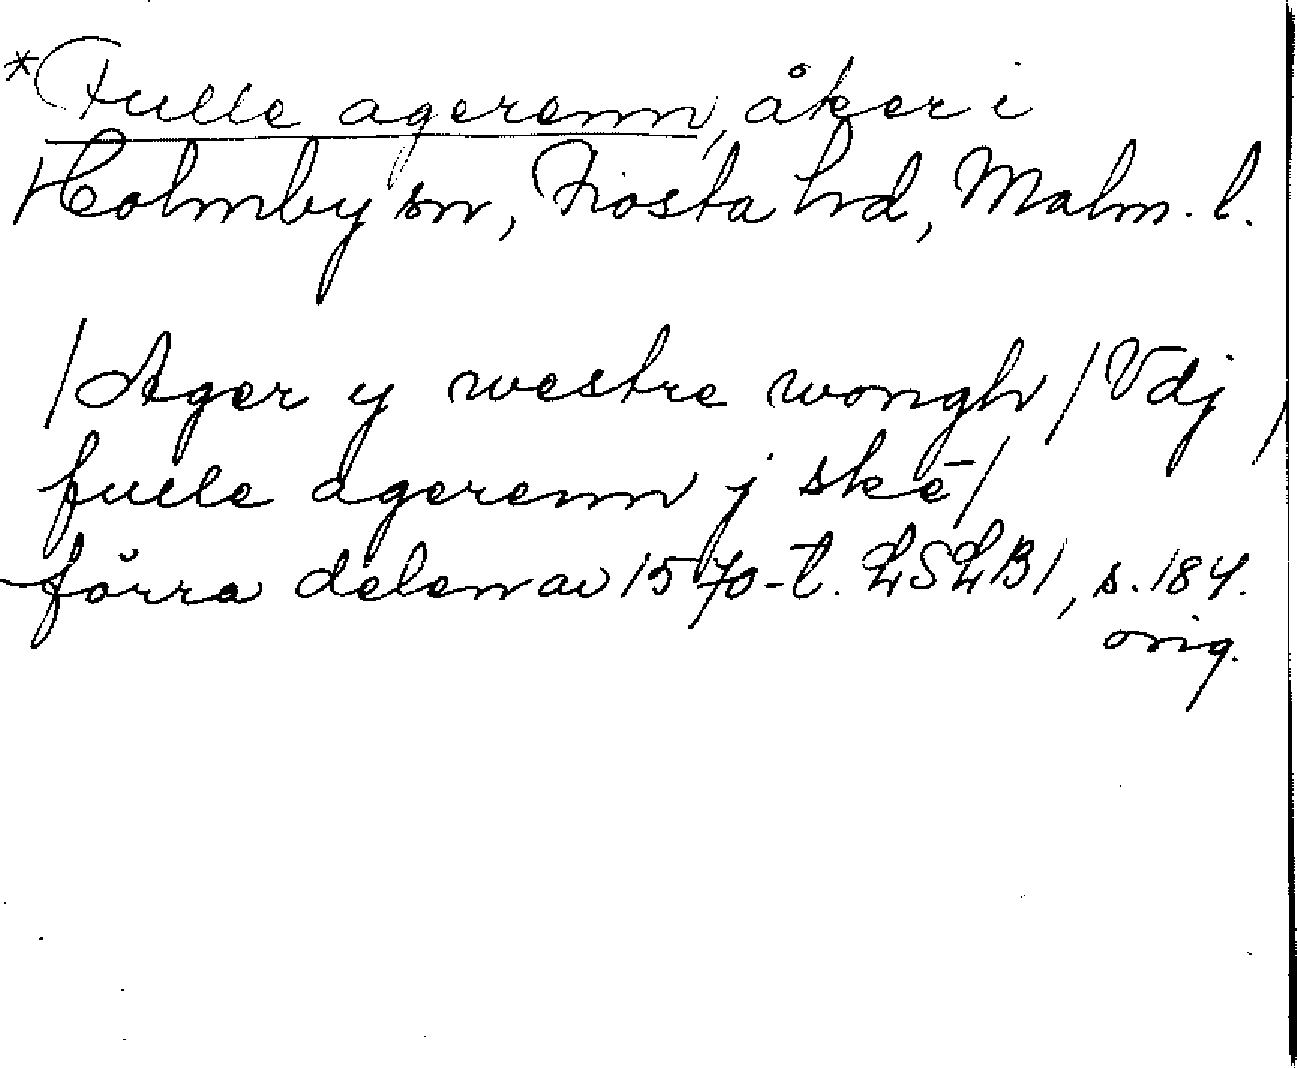 *Fulle agerenn, åker i
Holmby sn, Frosta hd, Malm. l.
/Ager y westre wongh/ Vdj /
fulle agerenn j ske-/
förra delen av 1570-t. LSLB1, s. 184.
orig.